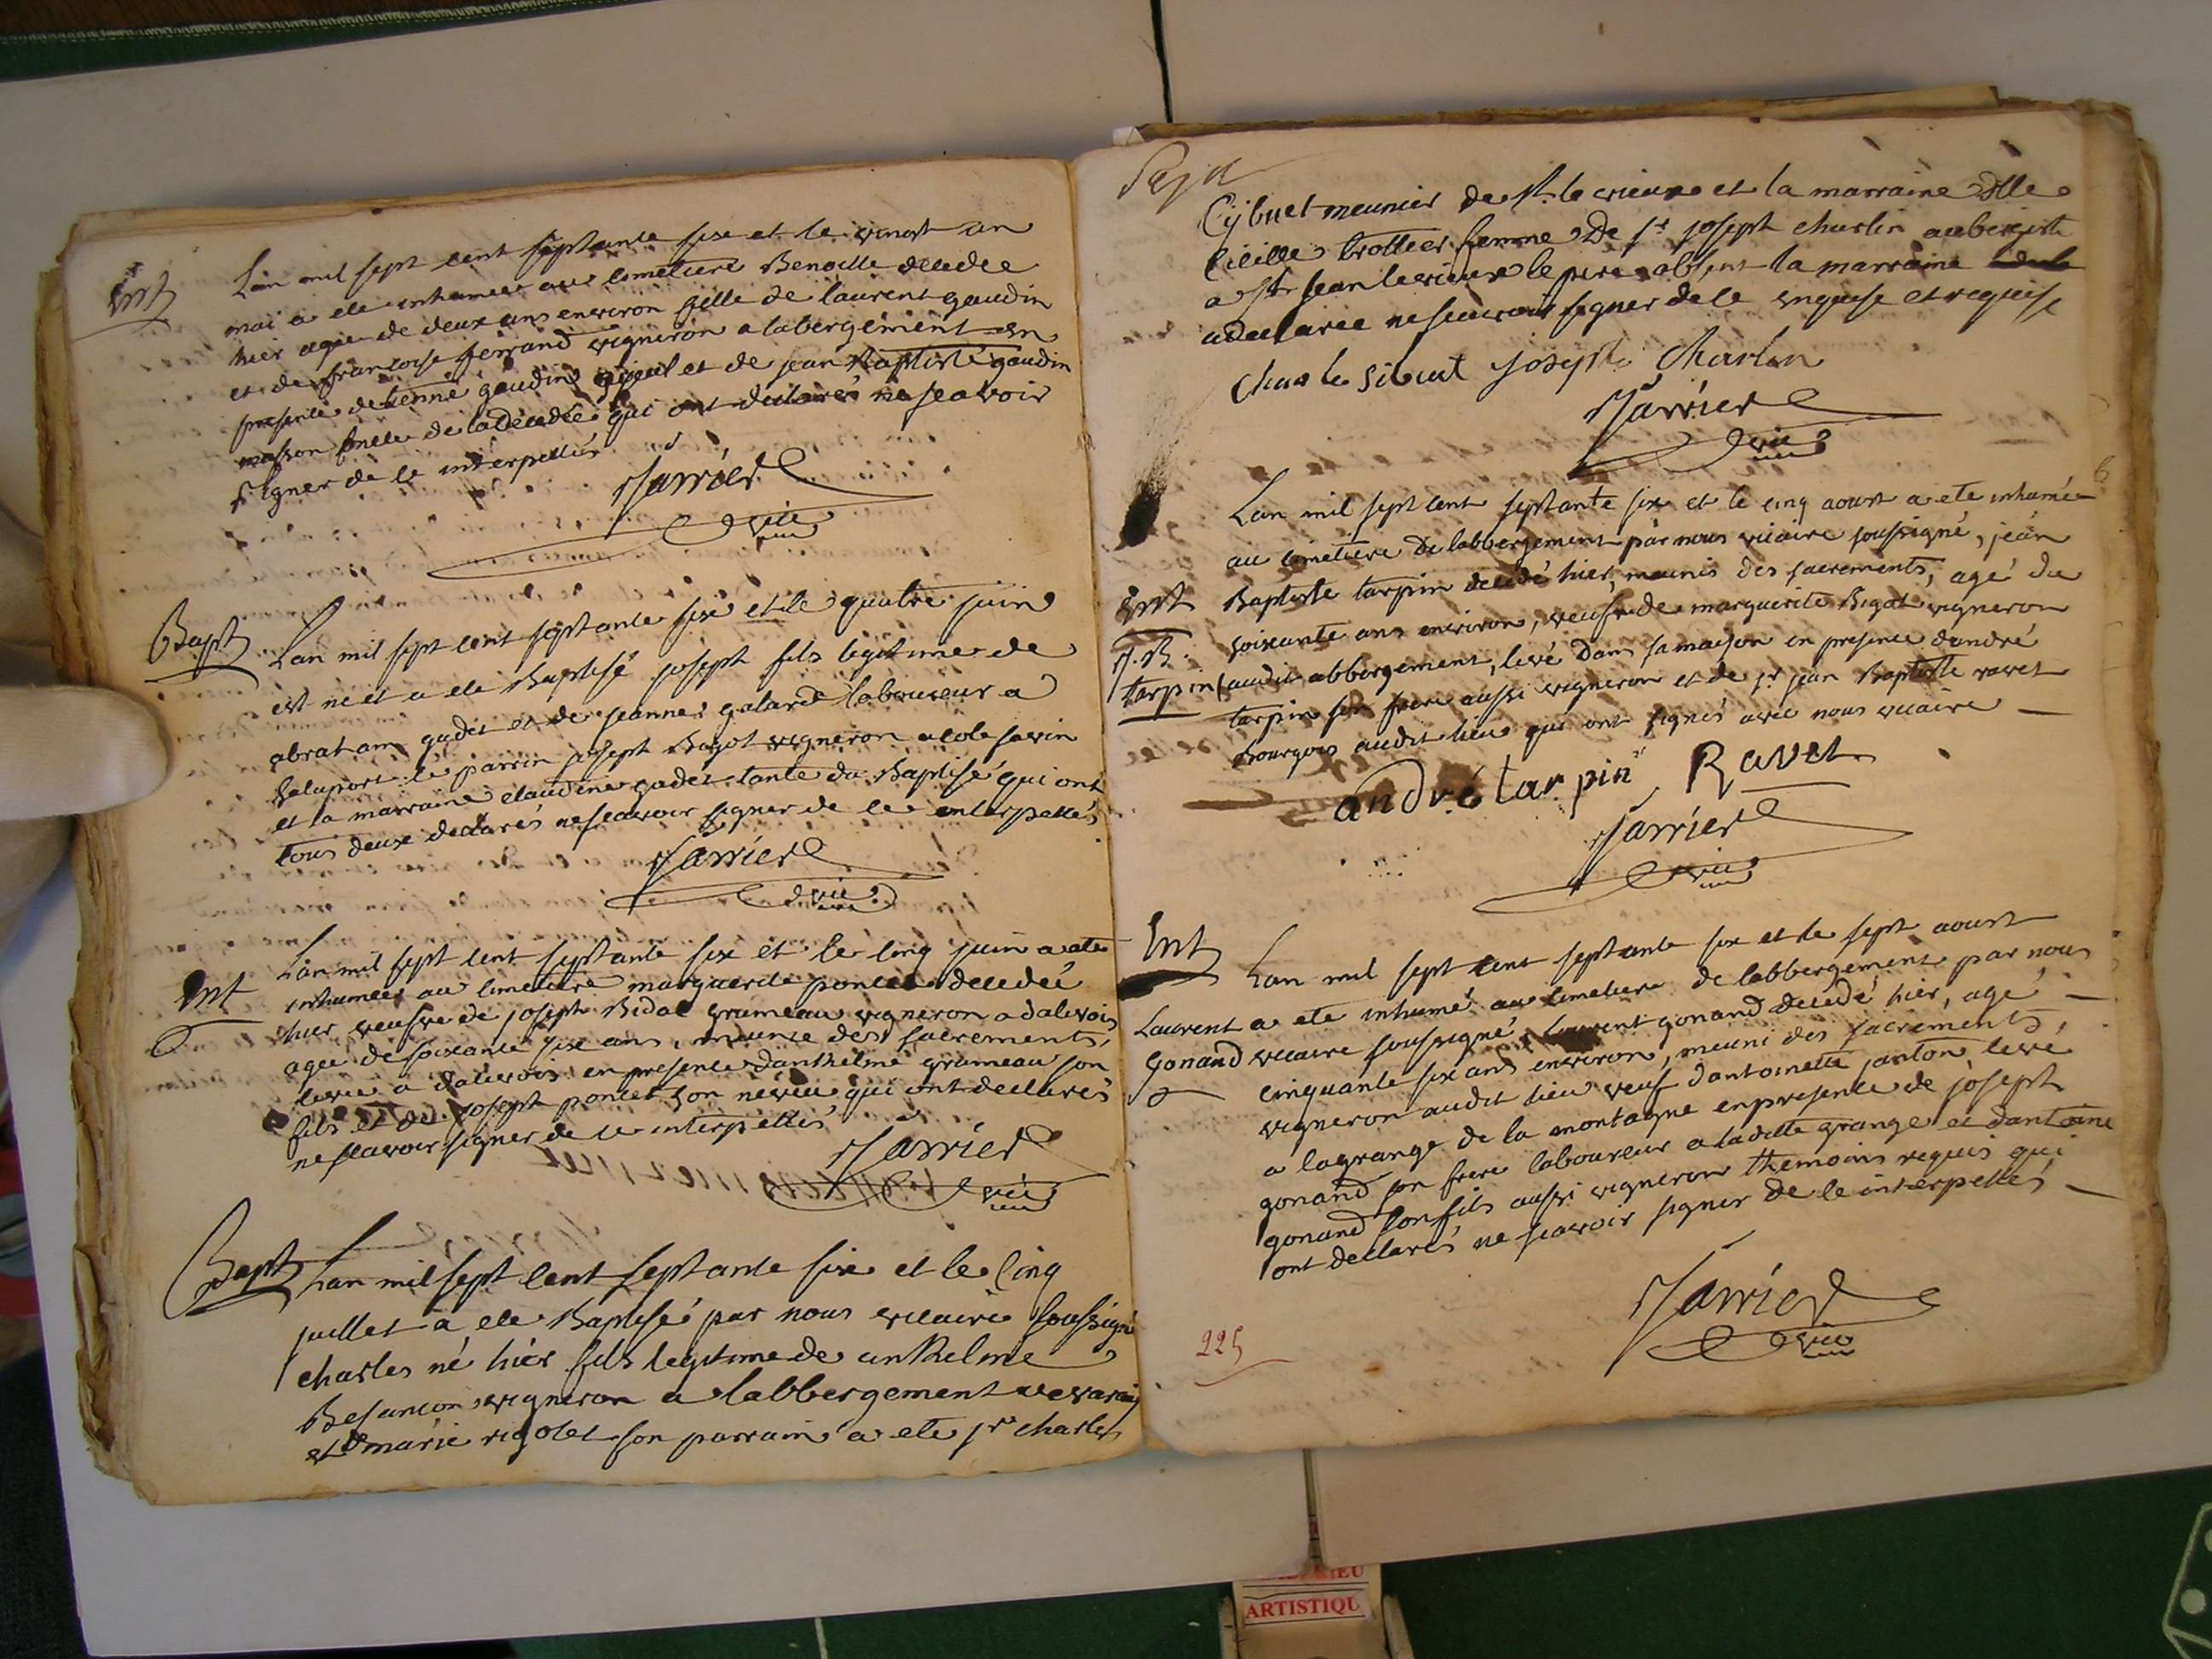 Ent
Lan mil sept cent septante six et le vingt un
mai a ete inhumée au cimetiere Benoitte decedée
hier agée de deux ans environ fille de laurent gaudin
et de francoise ferrand vigneron a labergement en
presence detienne gaudin ayeul et de jean Baptiste gaudin
masson oncle de la décedée qui ont declarés ne scavoir
signer de ce interpellés
Jarrier
vic
Bapt
Lan mil sept cent septante six et le quatre juin
est ne et a ete Baptisé joseph fils legitime de
abraham gadet et de jeanne galard laboureur a
le parrin joseph Bigot vigneron a cote savin
et la marraine claudine gadet tante du Baptisé qui ont
tous deux declarés ne scavoir signer de ce enterpellés
Jarrier
vic
Ent
Lan mil sept cent septante six et le cinq juin a ete
inhumée au cimetiere marguerite poncet decedée
hier veufve de joseph Bidal grumeau vigneron a dalivois
agée de soixante six ans, meunie des sacrements,
levée a dalivois en presence danthelme grumeau son
fils et de joseph poncet son neveu qui ont declarés
ne scavoir signer de ce interpellés
Jarrier
vic
Bapt
Lan mil sept cent septante six et le cinq
juillet a ete Baptisé par nous vicaire soussigné
charles né hier fils legitime de anthelme
Besancon vigneron a labbergement de varey
et de marie rigolet son parrain a ete sr charles
Cybuet meunier de st. le vieux et la marraine dlle
Cicille trottier femme De sr joseph charlin aubergiste
a st jean le vieux le pere absent la marraine
a declarée ne scavoir signer de ce enquise et requise
Charle sibuet joseph Charlin
Jarrier
vic
6
Lan mil sept cent septante six et le cinq aoust a ete inhumée
au cimetiere de labbergement par nous vicaire soussigné, jean
Ent
Baptiste tarpin decedé hier, meunis des sacrements, agé de
J. B.
soixante ans environ, veuf de marguerite Bigot vigneron
tarpin
audit abbergement, levé dans sa maison en presence dandré
tarpin son frere aussi vigneron et de sr jean Baptiste ravet
Bourgois audit lieu qui ont signés avec nous vicaire
andré tarpin Ravet
Jarrier
vic
Ent
Lan mil sept cent septante six et le sept aoust
Laurent
a ete inhumé au cimetiere de labbergement par nous
Gonand
vicaire soussigné, laurent gonand decedé hier, agé
cinquante six ans environ, meuni des sacrements,
vigneron audit lieu veuf dantoinette janton levé
a lagrange de la montagne en presence de joseph
gonand son frere laboureur a ladite grange et dantoine
gonand son fils aussi vigneron themoins requis qui
ont declarés ne scavoir signer de ce interpellés
Jarrier
vic
225
ARTISTIQU